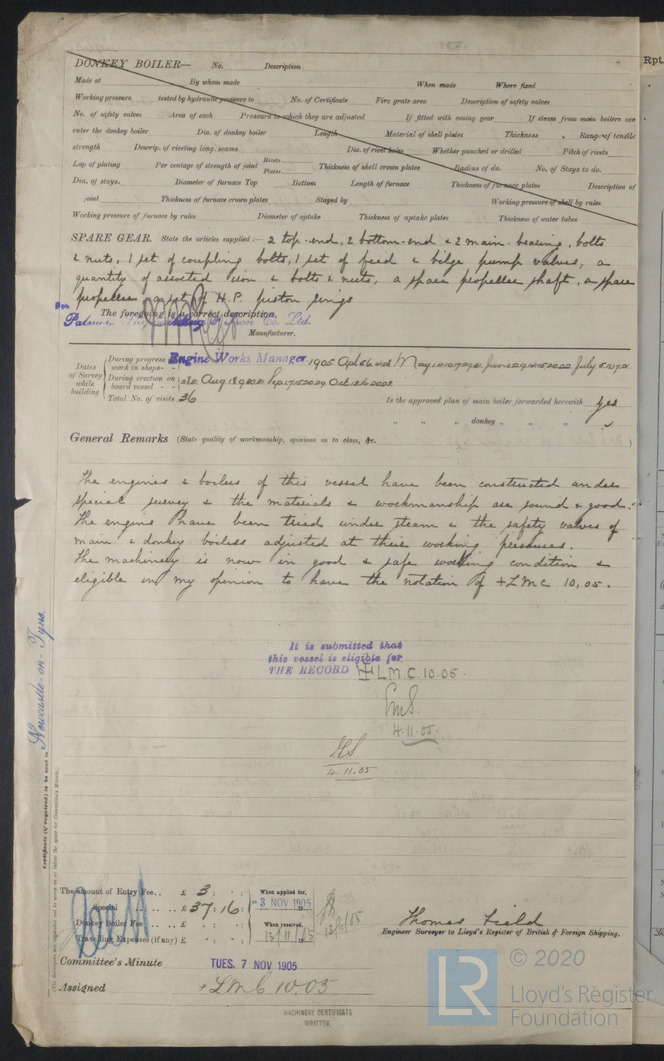 DONKEY BOILER— No. Description
Made at By whom made When made Where fixed
Working pressure tested by hydraulic pressure to No. of Certificate Fire grate area Description of safety valves
No. of safety valves Area of each Pressure to which they are adjusted If fitted with easing gear If steam from main boilers can
enter the donkey boiler Dia. of donkey boiler Length Material of shell plates Thickness Range of tensile
strength Descrip. of riveting long. seams Dia. of rivet holes Whether punched or drilled Pitch of rivets
Lap of plating Per centage of strength of joint Rivets Plates Thickness of shell crown plates Radius of do. No. of Stays to do.
Dia. of stays. Diameter of furnace Top Bottom Length of furnace Thickness of furnace plates Description of
joint Thickness of furnace crown plates Stayed by Working pressure of shell by rules
Working pressure of furnace by rules Diameter of uptake Thickness of uptake plates Thickness of water tubes
SPARE GEAR. State the articles supplied:— 2 top-end, 2 bottom-end & 2 main-bearing, bolts
& nuts, 1 set of coupling bolts, 1 set of feed & bilge pump valves, a
quantity of assorted iron & bolts & nuts, a spare propeller shaft, a spare
propeller a set of H.P. piston rings
The foregoing is a correct description,
For
Co. Ltd.
Manufacturer.
Engine Works Manager.
Dates of Survey while building
During progress of work in shops - - 1905
During erection on board vessel - - -
Total No. of visits 36
Is the approved plan of main boiler forwarded herewith yes
" " donkey " " "
General Remarks (State quality of workmanship, opinions as to class, &c.
The engines & boilers of this vessel have been constructed under
special survey & the materials & workmanship are sound & good.
The engines have been tried under steam & the safety valves of
main & donkey boilers adjusted at their working pressures.
The machinery is now in good & safe working condition &
eligible in my opinion to have the notation of +LMC 10,05.
It is submitted that
this vessel is eligible for
THE RECORD + L.M.C. 10.05.
4.11.05
4.11.05
Certificate (if required) to be sent to Newcastle-on-Tyne.
The amount of Entry Fee.. £ 3 : :
Special .. .. £ 37 : 16 :
Donkey Boiler Fee .. £ : :
Travelling Expenses (if any) £ : :
When applied for,
- 3 NOV 1905
When received,
13/11/05
Thomas Field
Engineer Surveyor to Lloyd's Register of British & Foreign Shipping.
Committee's Minute TUES. 7 NOV 1905
Assigned + L.M.C. 10.05
MACHINERY CERTIFICATE
WRITTEN.
Rpt.
LR © 2020
Lloyd's Register
Foundation